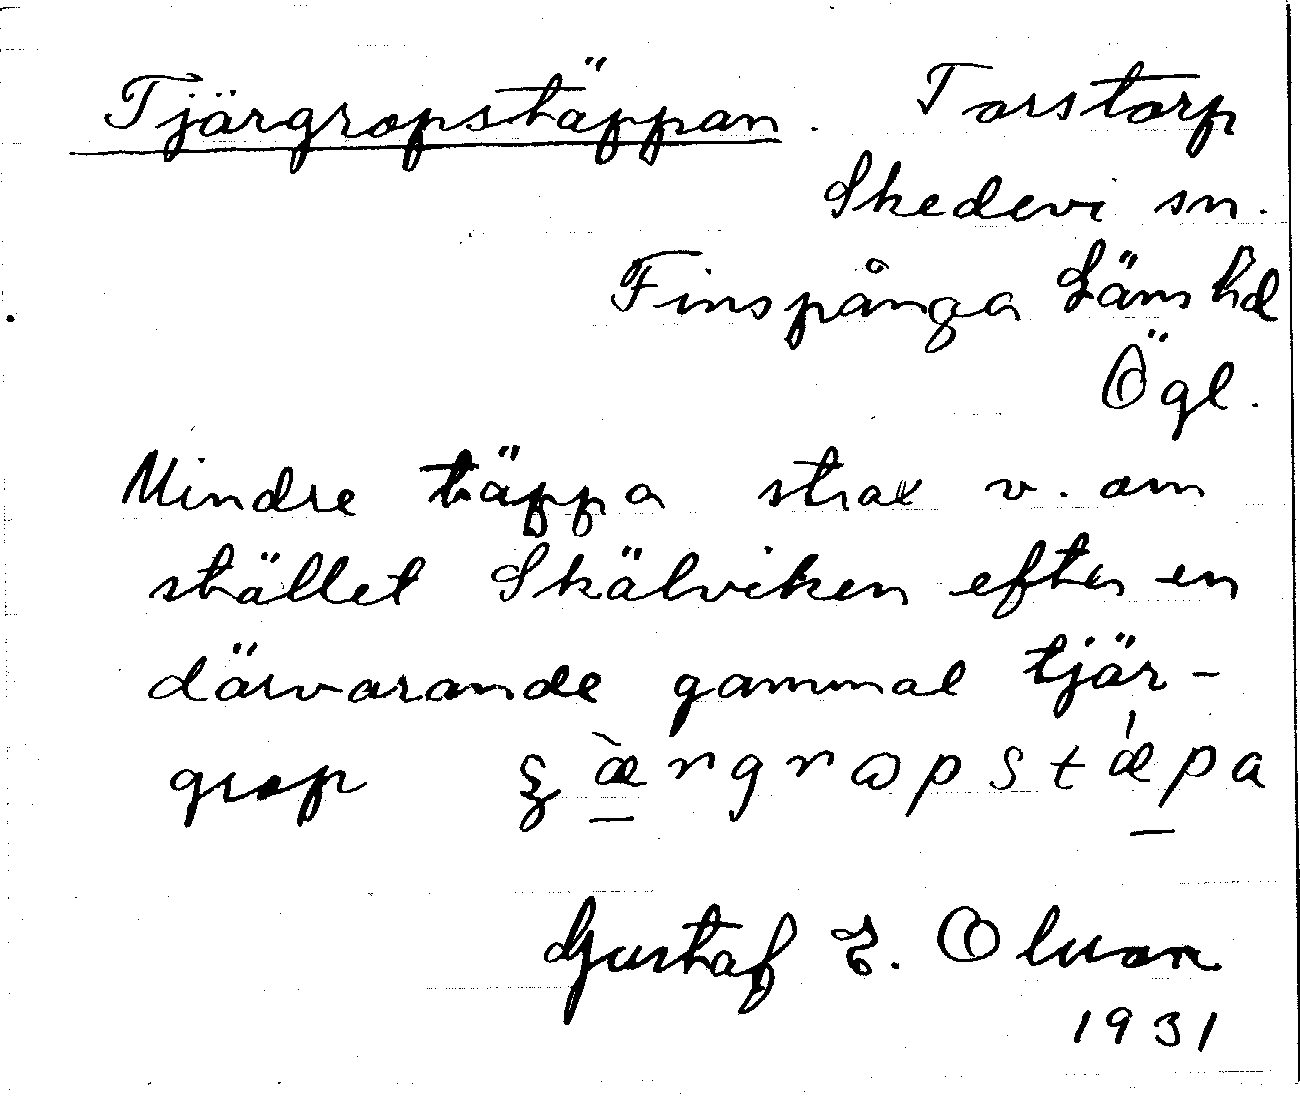 Tjärgropstäppan. Torstorp
Skedevi sn.
Finspånga Läns hd
Ögl.
Mindre täppa strax v. om
stället Skälviken efter en
därvarande gammal tjär-
grop
Gustaf E. Olsson
1931